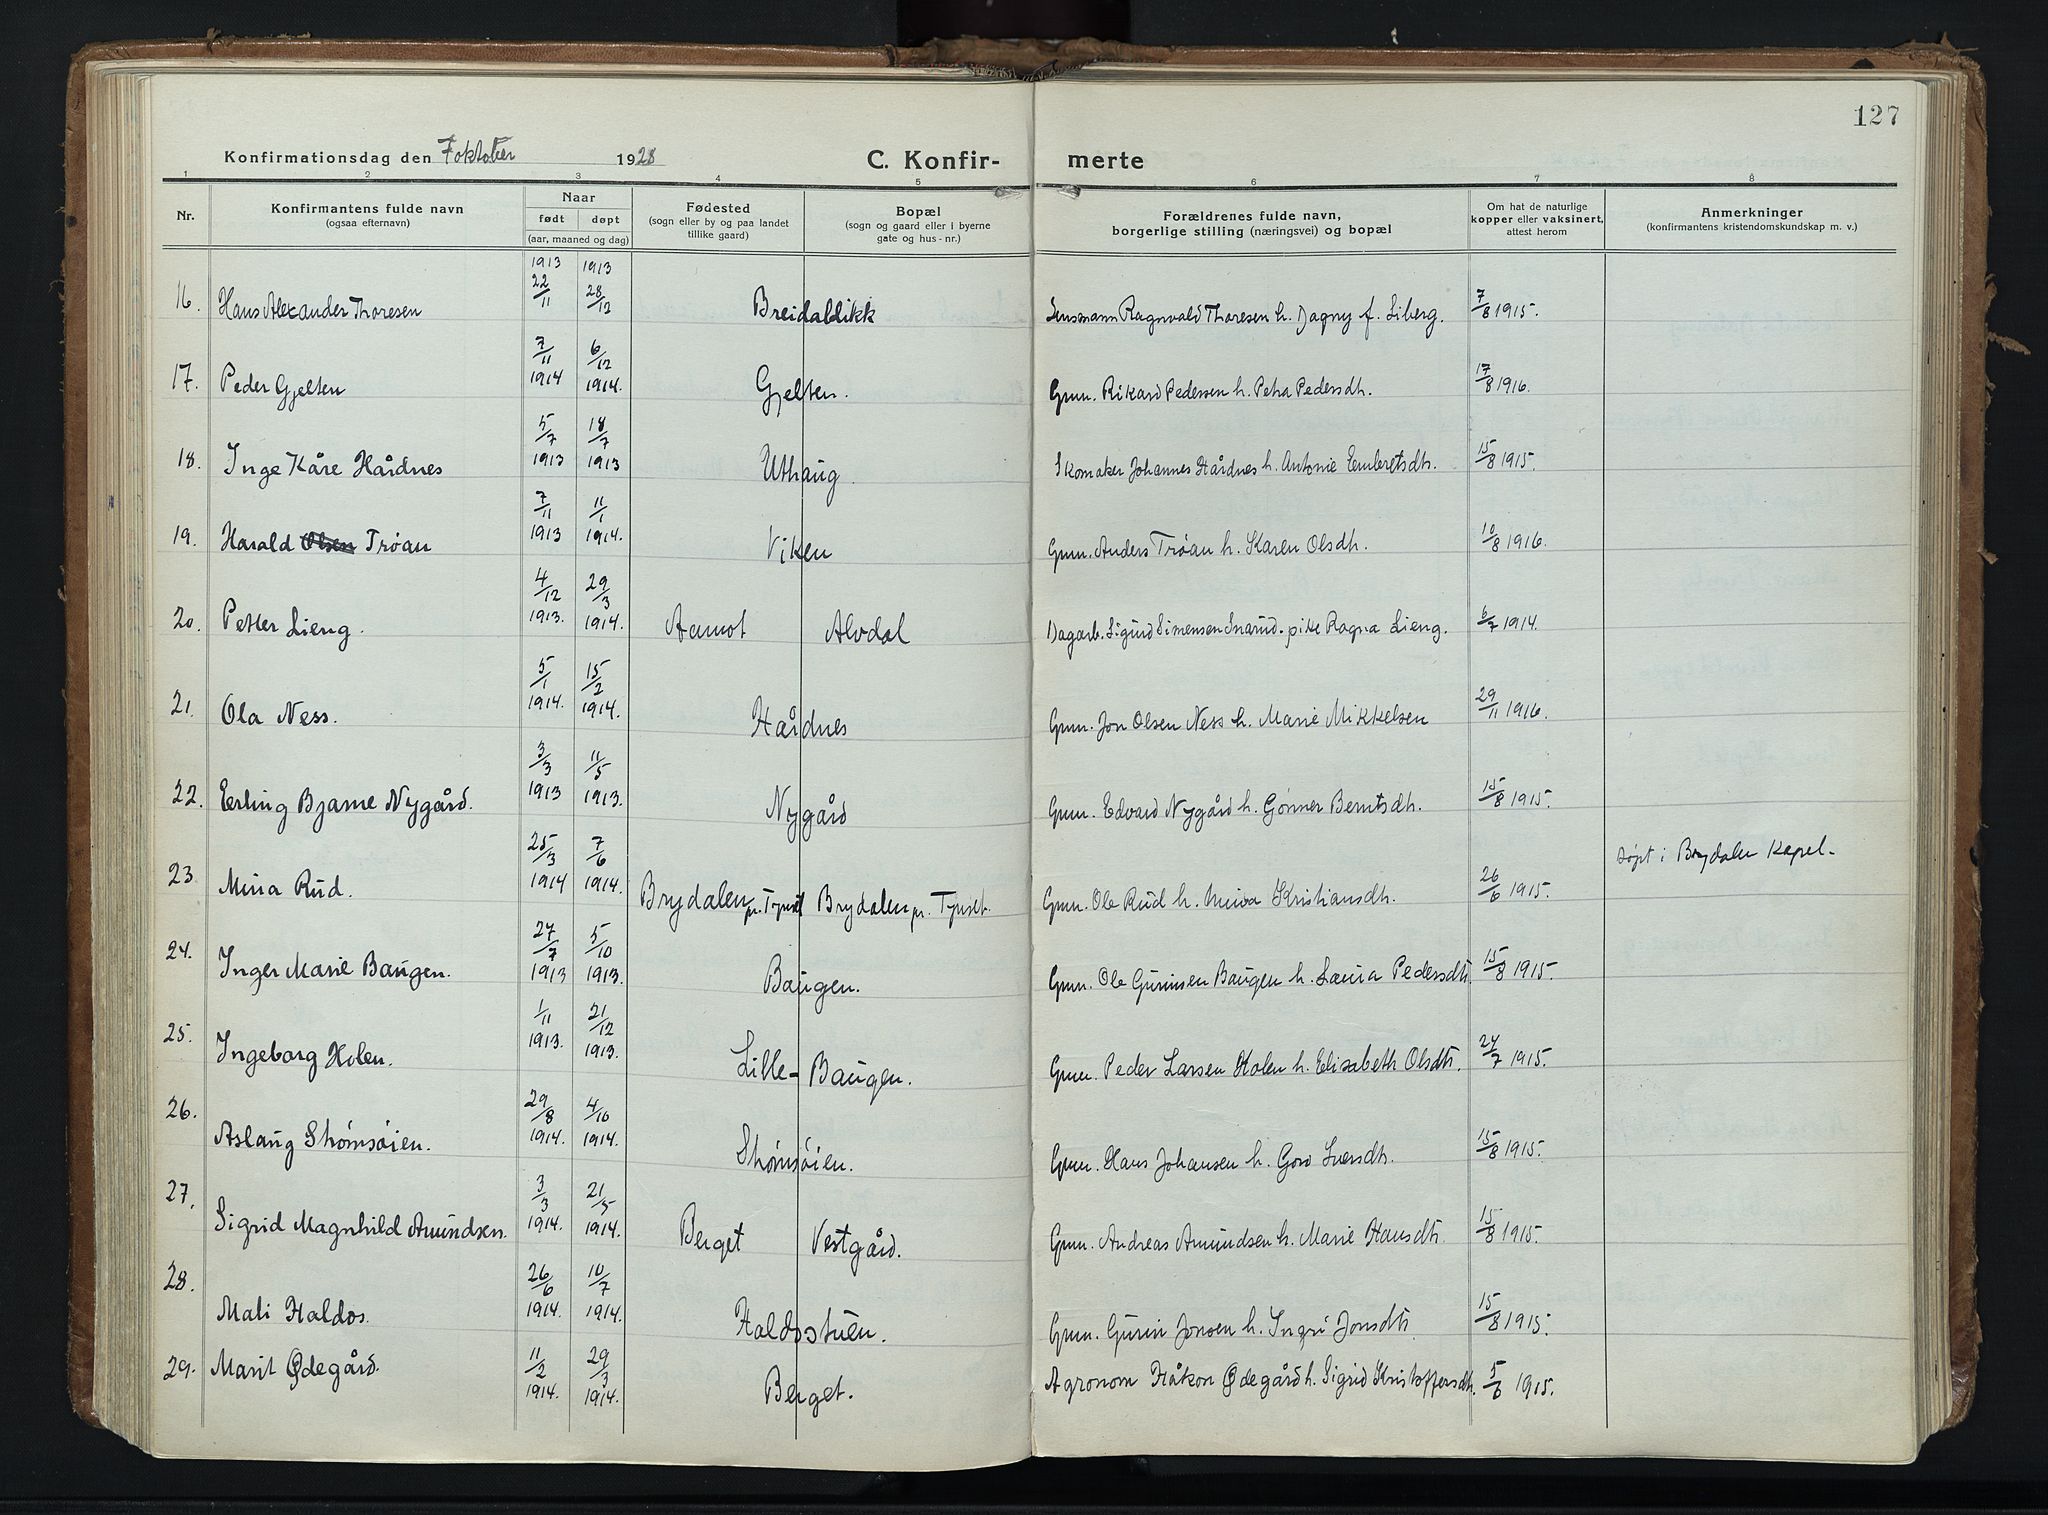 127
Konfirmationsdag den 7 oktober 1928 C. Konfir- merte
1 2 3 4 5 6 7 8
Nr. Konfirmantens fulde navn (ogsaa efternavn) Naar født døpt (aar, maaned og dag) Fødested (sogn eller by og paa landet tillike gaard) Bopæl (sogn og gaard eller i byerne gate og hus-nr.) Forældrenes fulde navn, borgerlige stilling (næringsvei) og bopæl Om hat de naturlige kopper eller vaksinert, attest herom Anmerkninger (konfirmantens kristendomskundskap m. v.)
16. Hans Alexander Thoresen 1913 22/11 1913 28/12 Breidablikk Lensmann Ragnvald Thoresen h. Dagny f. Liberg. 7/8 1915.
17. Peder Gjelten 7/11 1914 6/12 1914. Gjelten. Grm. Rikard Pedersen h. Petra Pedersdh. 17/8 1916.
18. Inge Kåre Hårdnes 5/7 1913 18/7 1913 Uthaug Skomaker Johannes Hårdnes h. Antonie Embretsdh. 15/8 1915.
19. Harald Olsen Trøan 7/11 1913 11/1 1914. Viken Grm. Anders Trøan h. Karen Olsdh. 10/8 1916.
20. Petter Lieng. 4/12 1913. 29/3 1914. Aamot Alvdal Dagarb. Sigurd Simensen Snarud. pike Ragna Lieng. 6/7 1914.
21. Ola Ness. 5/1 1914. 15/2 1914. Hårdnes Grm. Jon Olsen Ness h. Marie Mikkelsen 29/11 1916.
22. Erling Bjarne Nygård. 3/3 1913 11/5 1913. Nygård Grm. Edvard Nygård h. Gønner Berntsdh. 15/8 1915.
23 Mina Rud. 25/3 1914 7/6 1914. Brydalen pr. Tynset Brydalen pr. Tynset. Grm. Ole Rud h. Kristiansdh. 26/6 1915. døpt i Brydalen Kapel.
24. Inger Marie Baugen. 27/7 1913 5/10 1913. Baugen. Grm. Ole Gunnsen Baugen h. Laura Pedersdtr. 15/8 1915.
25. Ingeborg Holen. 1/11 1913. 21/12 1913. Lille-Baugen. Grm. Peder Larsen Holen h. Elisabeth Olsdtr. 24/7 1915.
26. Aslaug Strømsøien. 29/8 1914. 4/10 1914. Strømsøien. Grm. Hans Johansen h. Goro 15/8 1915.
27. Sigrid Magnhild Amundsen. 3/3 1914. 21/5 1914. Berget Vestgård. Grm. Andreas Amundsen h. Marie Hansdtr. 15/8 1915.
28. Mali Haldos. 26/6 1914. 10/7 1914. Haldosstuen. Grm. Gunn Jonsen h. Ingri Jonsdtr. 15/8 1915.
29. Marit Ødegård. 11/2 1914. 29/3 1914. Berget. Agronom Håkon Ødegård h. Sigrid Kristoffersdh. 5/6 1915.